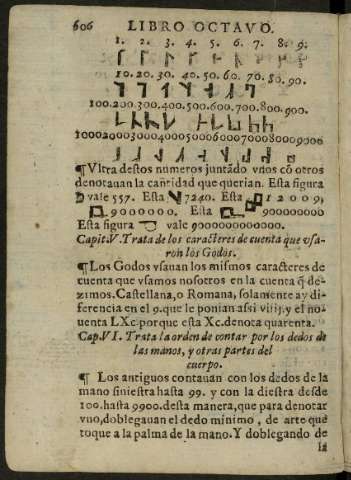 606 LIBRO OCTAVO.
1. 2. 3. 4. 5. 6. 7. 8. 9.
10. 20. 30. 40. 50. 60. 70. 80. 90.
100. 200. 300. 400. 500. 600. 700. 800. 900.
1000 2000 3000 4000 5000 6000 7000 8000 9000
¶Vltra destos numeros juntãdo vnos cõ otros
denotauan la cantidad que querian. Esta figura
vale 557. Esta 7240. Esta 12009,
9000000. Esta 900000000
Esta figura vale 900000000000.
Capit. V. Trata de los caracteres de cuenta que vsa-
ron los Godos.
¶Los Godos vsauan los mismos caracteres de
cuenta que vsamos nosotros en la cuenta q̃ de-
zimos. Castellana, o Romana, solamente ay di-
ferencia en el 9. que le ponian assi viiij. y el no-
uenta LXc. porque esta Xc. denota quarenta.
Cap. VI. Trata la orden de contar por los dedos de
las manos, y otras partes del
cuerpo.
¶ Los antiguos contauan con los dedos de la
mano siniestra hasta 99. y con la diestra desde
100. hasta 9900. desta manera, que para denotar
vno, doblegauan el dedo minimo, de arte que
toque a la palma de la mano. Y doblegando de
la